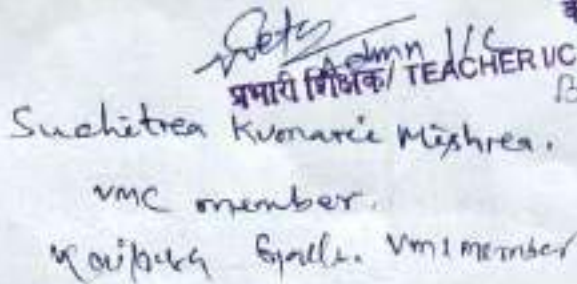 Admn I/C
प्रभारी शिक्षक/ TEACHER I/C
Suchitrea Kumarie Mishrea.
VMC member.
VMC member